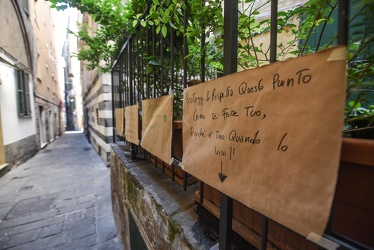 Proteggi & Rispetta Questo Punto
Come se fosse Tuo,
Perché è Tuo Quando lo
Vivi!!